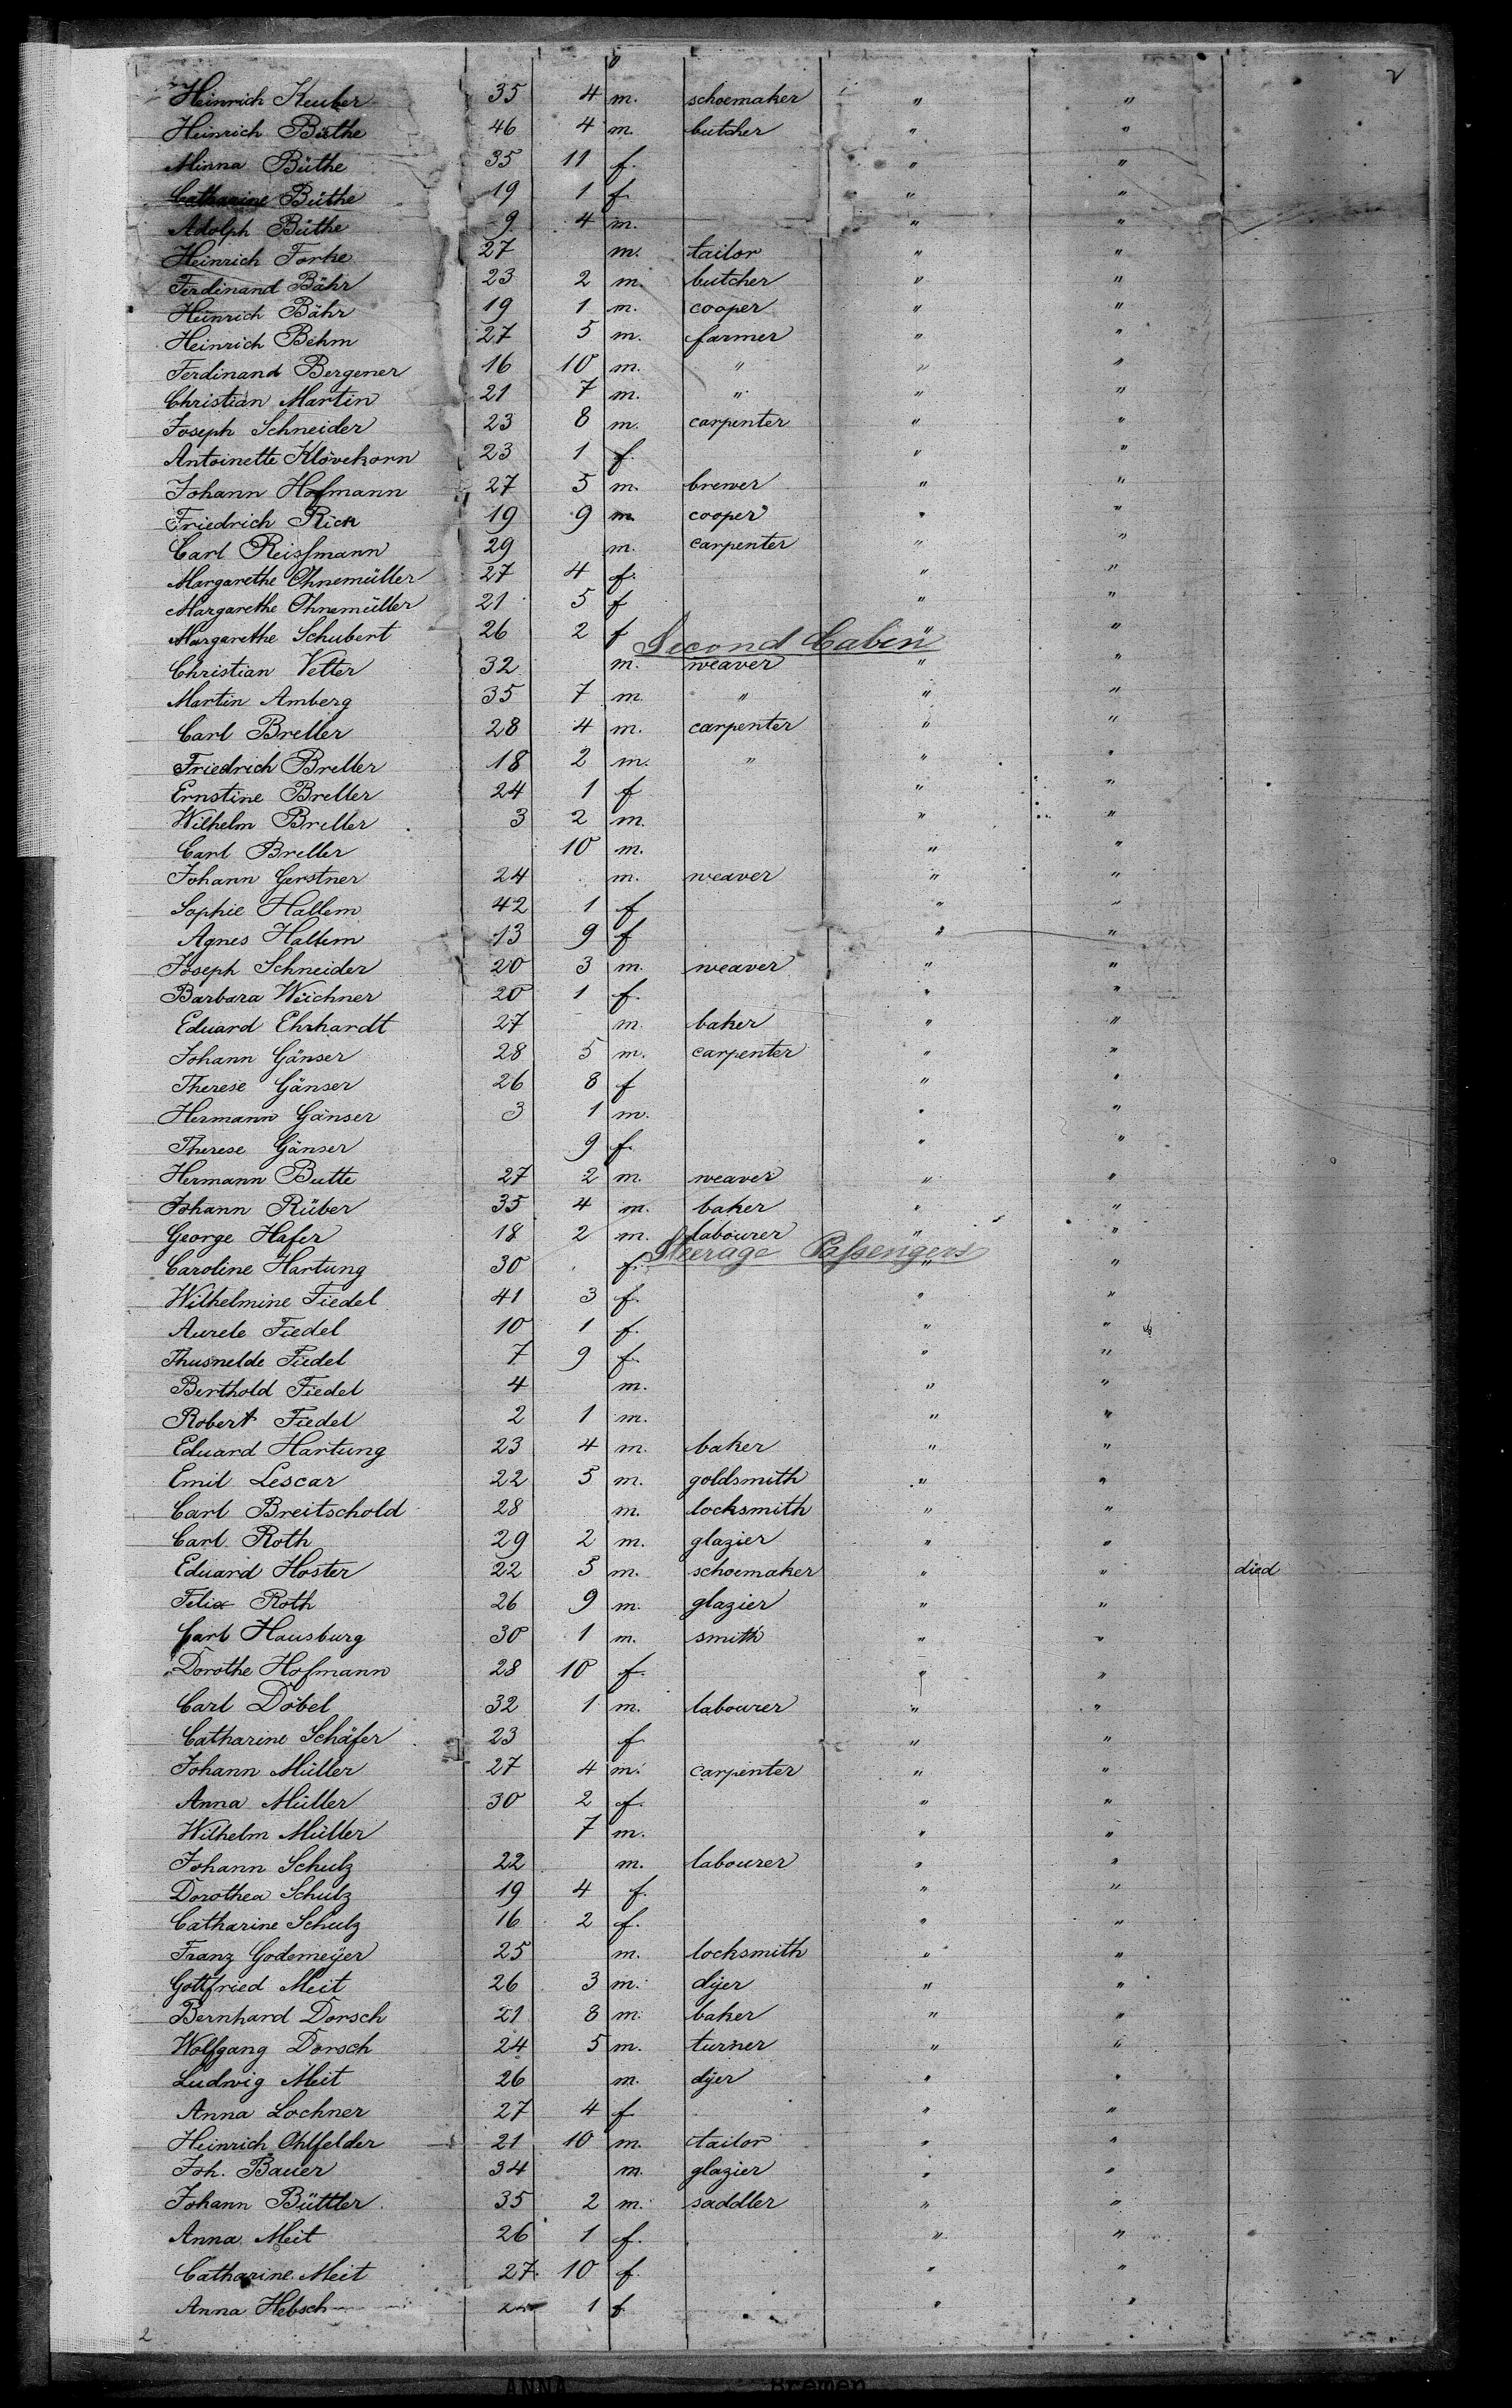 "
2
Heinrich Keuber 35 4 m. schoemaker " "
Heinrich Büthe 46 4 m. butcher " "
Minna Büthe 35 11 f. " "
Catharine Büthe 19 1 f " "
Adolph Büthe 9 4 m. " "
Heinrich Forke 27 m. tailor " "
Ferdinand Bähr 23 2 m. butcher " "
Heinrich Bähr 19 1 m. cooper " "
Heinrich Behm 27 5 m. farmer " "
Ferdinand Bergener 16 10 m. " " "
Christian Martin 21 7 m. " " "
Joseph Schneider 23 8 m. carpenter " "
Antoinette Klövekorn 23 1 f. " "
Johann Hofmann 27 5 m. brewer " "
Friedrich Rick 19 9 m. cooper " "
Carl Reissmann 29 m. carpenter " "
Margarethe Ohnemüller 27 4 f. " "
Margarethe Ohnemüller 21 5 f " "
Margarethe Schubert 26 2 f " "
Second Cabin
Christian Vetter 32 m. weaver " "
Martin Amberg 35 7 m. " " "
Carl Breller 28 4 m. carpenter " "
Friedrich Breller 18 2 m. " " "
Ernstine Breller 24 1 f " "
Wilhelm Breller 3 2 m. " "
Carl Breller 10 m. " "
Johann Gerstner 24 m. weaver " "
Sophie Hallem 42 1 f " "
Agnes Hallem 13 9 f " "
Joseph Schneider 20 3 m. weaver " "
Barbara Weichner 20 1 f. " "
Eduard Ehrhardt 27 m. baker " "
Johann Gänser 28 5 m. carpenter " "
Therese Gänser 26 8 f " "
Hermann Gänser 3 1 m. " "
Therese Gänser 9 f. " "
Hermann Butte 27 2 m. weaver " "
Johann Rüber 35 4 m. baker " "
George Hafer 18 2 m. labourer " "
Steerage Passengers
Caroline Hartung 30 f. " "
Wilhelmine Fiedel 41 3 f. " "
Aurele Fiedel 10 1 f. " "
Thusnelde Fiedel 7 9 f. " "
Berthold Fiedel 4 m. " "
Robert Fiedel 2 1 m. " "
Eduard Hartung 23 4 m. baker " "
Emil Lescar 22 5 m. goldsmith " "
Carl Breitschold 28 m. locksmith " "
Carl Roth 29 2 m. glazier " "
Eduard Hoster 22 5 m. schoemaker " " died
Felix Roth 26 9 m. glazier " "
Carl Hausburg 30 1 m. smith " "
Dorothe Hofmann 28 10 f. " "
Carl Döbel 32 1 m. labourer " "
Catharine Schäfer 23 f. " "
Johann Müller 27 4 m. carpenter " "
Anna Müller 30 2 f. " "
Wilhelm Müller 7 m. " "
Johann Schulz 22 m. labourer " "
Dorothea Schulz 19 4 f. " "
Catharine Schulz 16 2 f. " "
Franz Godemeÿer 25 m. locksmith " "
Gottfried Meit 26 3 m. dÿer " "
Bernhard Dorsch 21 8 m. baker " "
Wolfgang Dorsch 24 5 m. turner " "
Ludwig Meit 26 m. dÿer " "
Anna Lochner 27 4 f " "
Heinrich Ohlfelder 21 10 m. tailor " "
Joh. Bauer 34 m. glazier " "
Johann Büttler 35 2 m. saddler " "
Anna Meit 26 1 f. " "
Catharine Meit 27 10 f " "
Anna Hebsch 1 f " "
2
ANNA Bremen